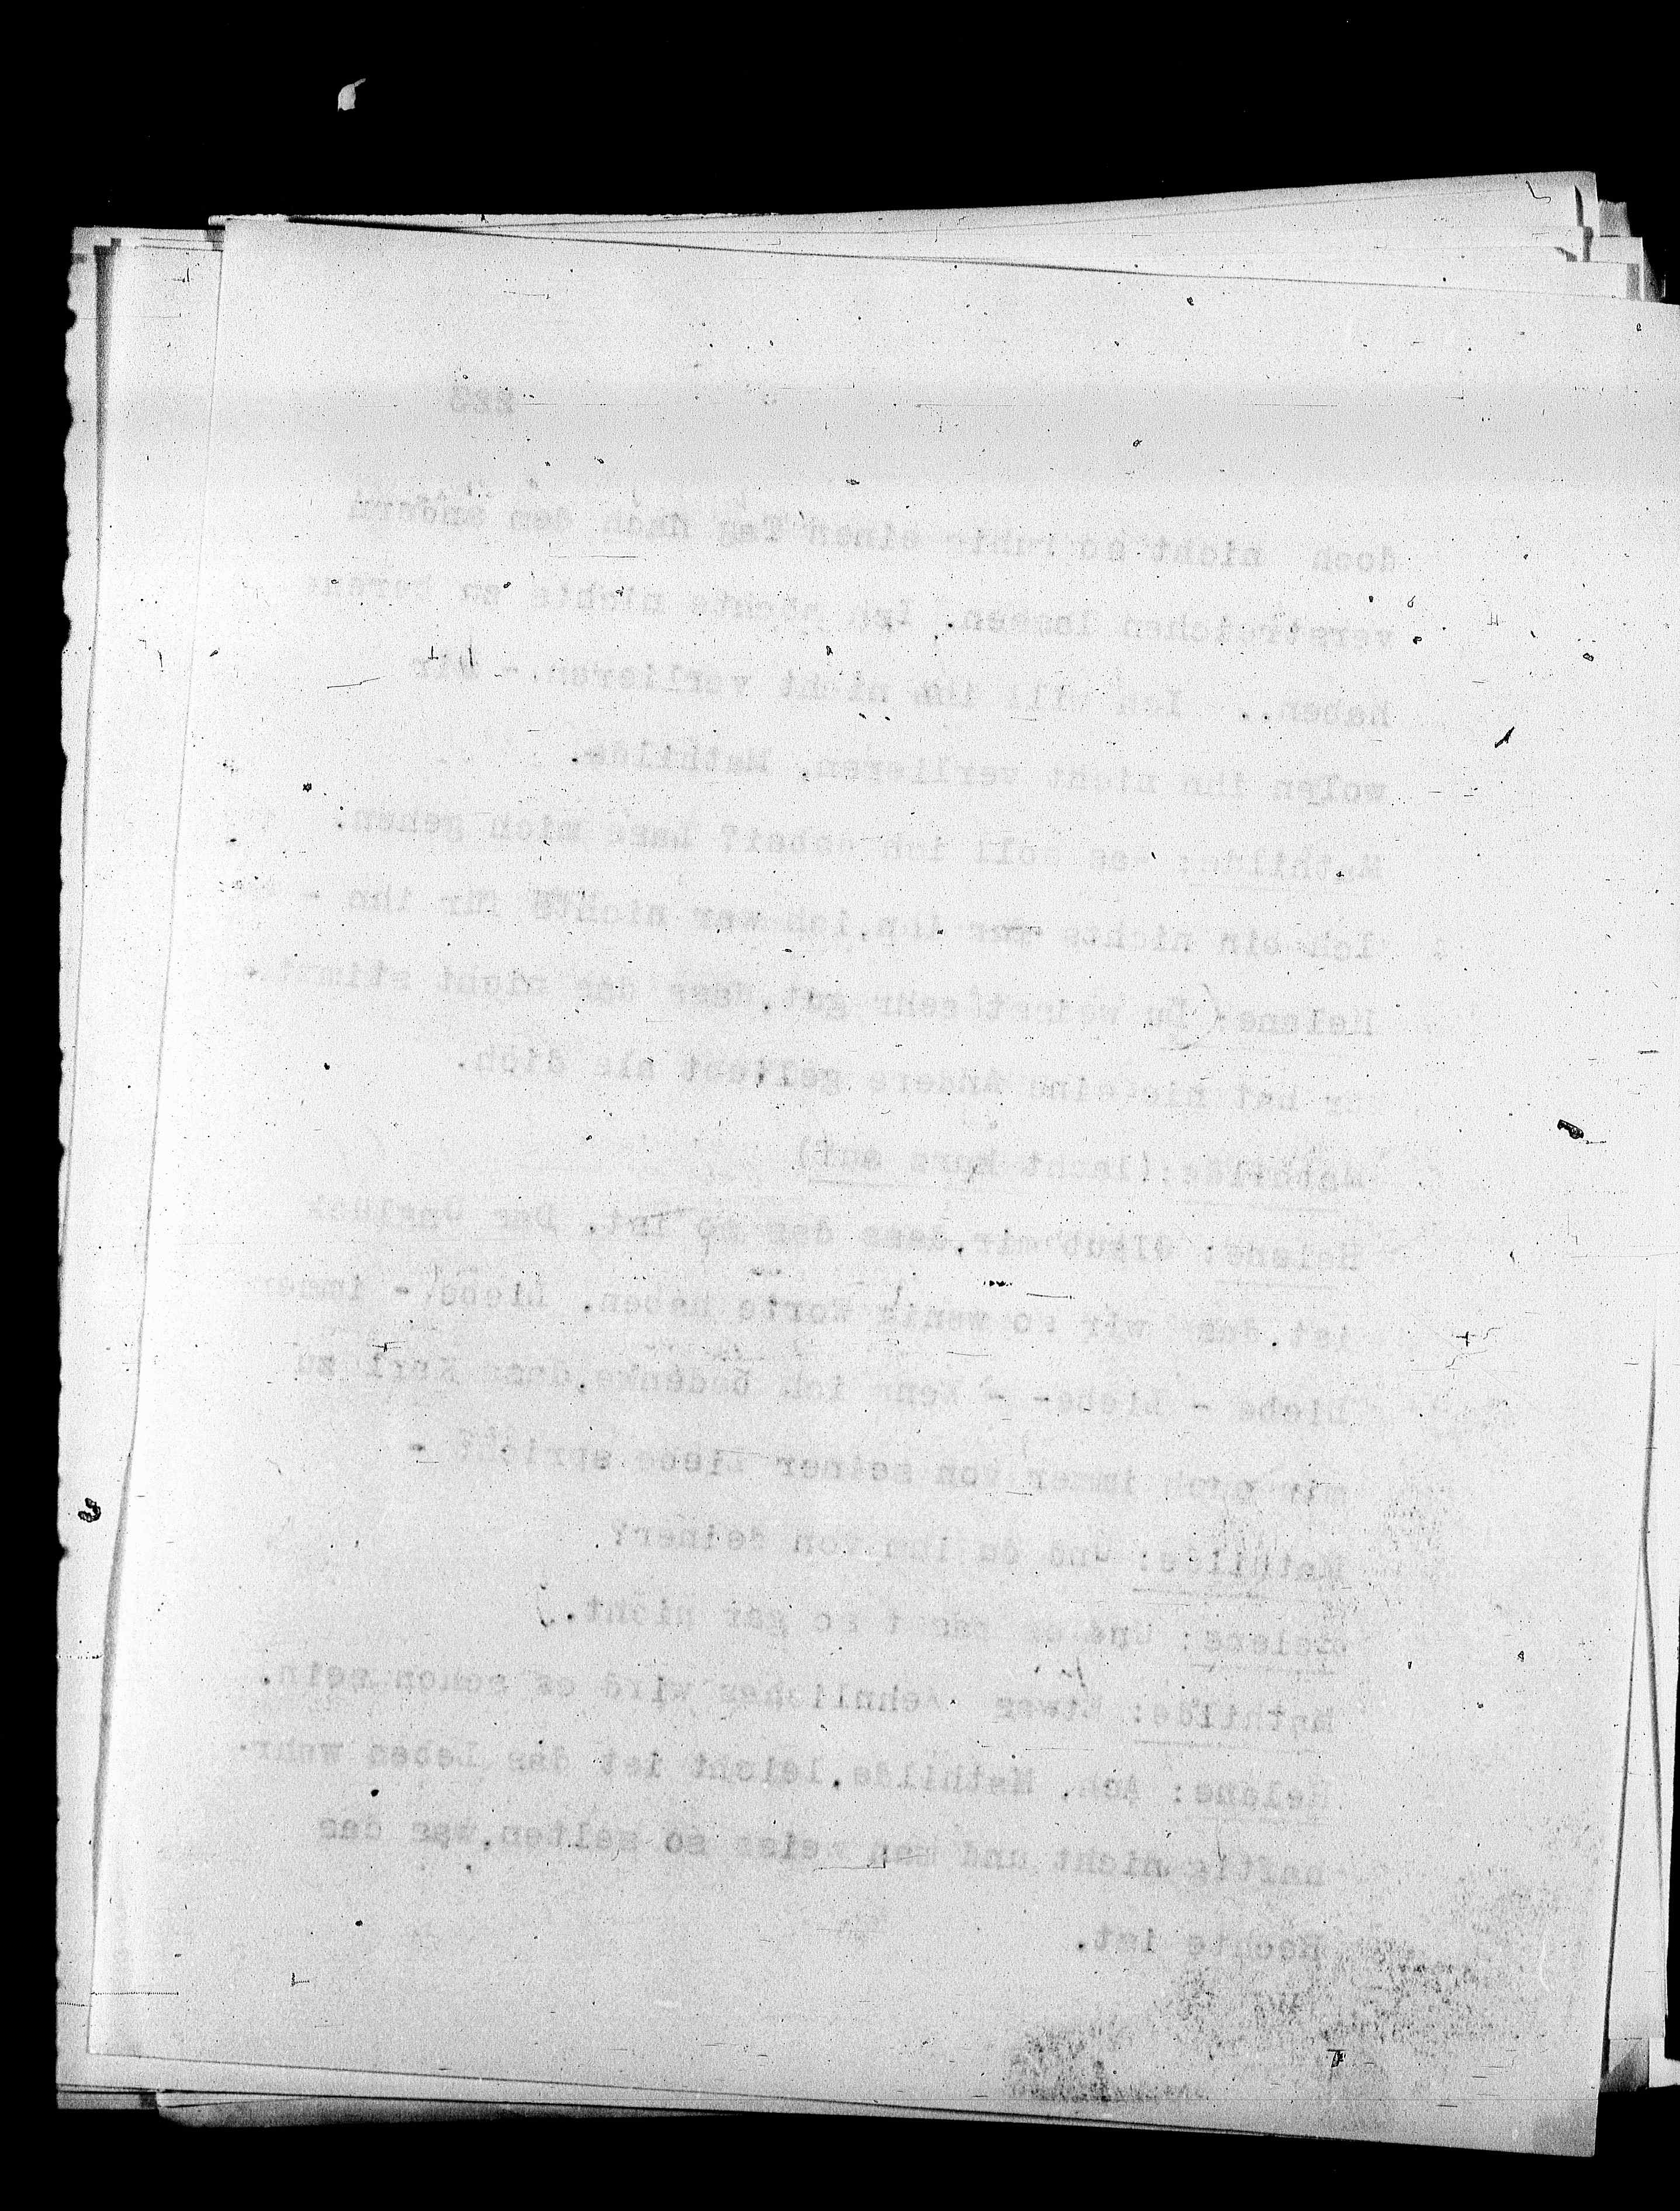 223
doch nicht so ruhig einen Tag nach dem andern
verstreichen lassen. Ich möchte nichts zu bereuen
haben.. Ich will ihn nicht verlieren. - Wir
wolen ihn nicht verlieren, Mathilde.
Mathilde: Was soll ich dabei? Lass mich gehen.
Ich bin nichts für ihn, ich war nichts für ihn -
Helene: Du weisst sehr gut, dass das nicht stimmt.
Er hat nie eine Andere geliebt als dich.
Mathilde: (lacht kurz auf)
Helene: Glaub mir, dass das so ist. Das Unglück
ist, dass wir so wenig Worte haben. Liebe - immer
Liebe - Liebe - - Wenn ich bedenke, dass Karl zu
mir auch immer von seiner Liebe spricht -
Mathilde: Und du ihm von deiner?
Helene: Und es passt so gar nicht.
Mathilde: Etwas Aehnliches wird es schon sein.
Helene: Ach, Mathilde, leicht ist das Leben wahr-
haftig nicht und man weiss so selten, was das
Rechte ist.